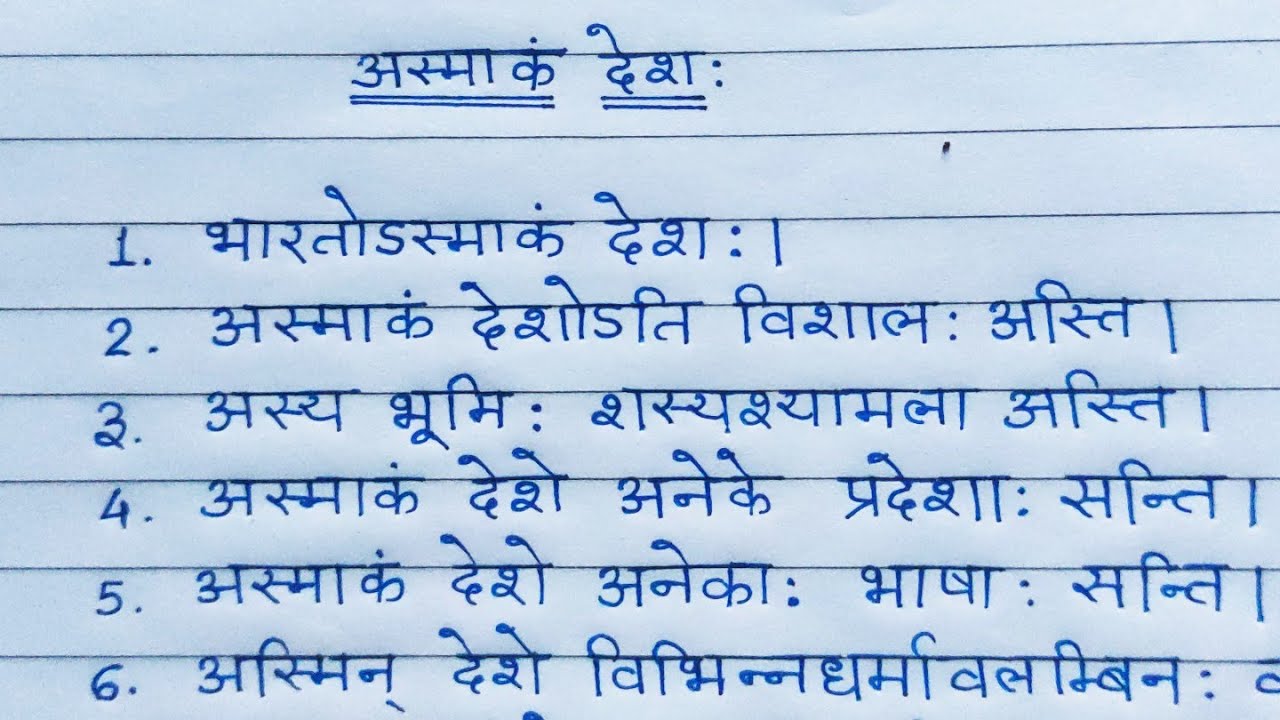 अस्माकं देशः
1. भारतोऽस्माकं देशः।
2. अस्माकं देशोऽति विशालः अस्ति।
3. अस्य भूमिः शस्यश्यामला अस्ति।
4. अस्माकं देशे अनेके प्रदेशाः सन्ति।
5. अस्माकं देशे अनेकाः भाषाः सन्ति।
6. अस्मिन् देशे विभिन्नधर्मावलम्बिनः